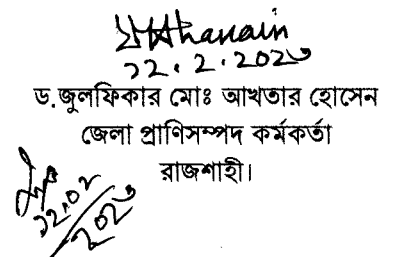 ২২.২.২০২৩
ড.জুলফিকার মোঃ আখতার হোসেন
জেলা প্রাণিসম্পদ কর্মকর্তা
রাজশাহী।
২২.০২
২০২৩